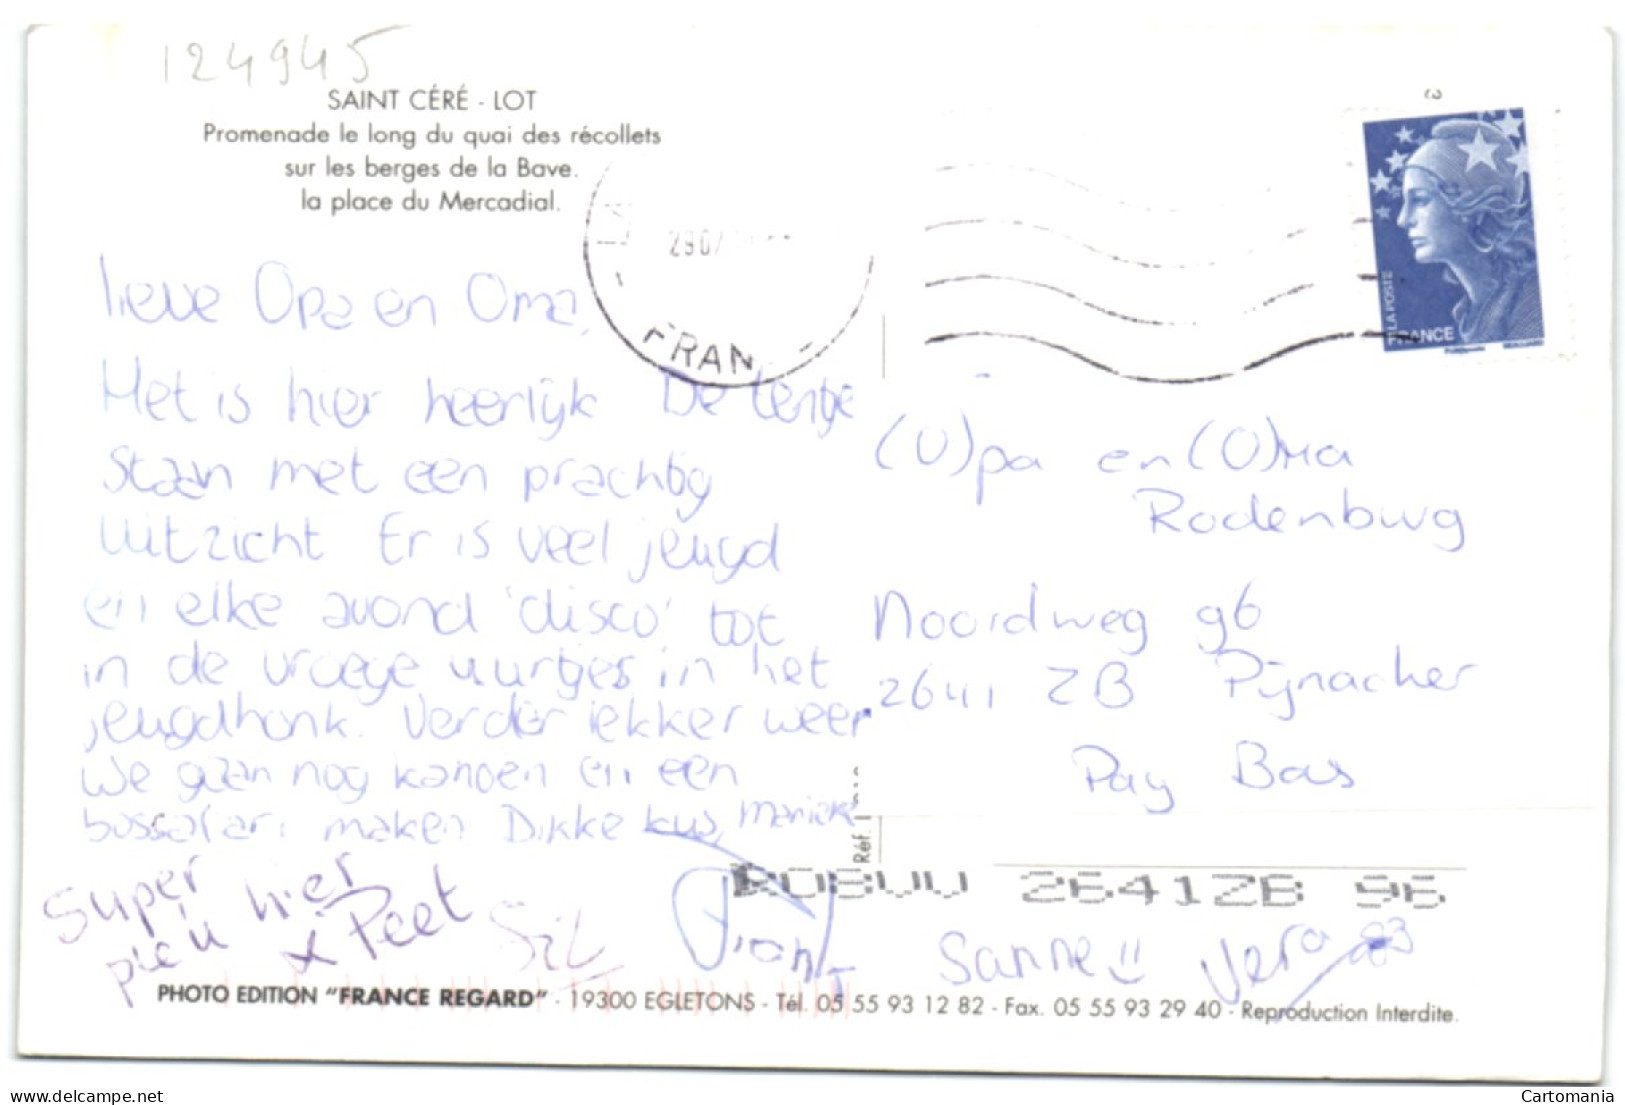 124945
SAINT CÉRÉ - LOT
Promenade le long du quai des récollets
sur les berges de la Bave.
la place du Mercadial.
2907
FRAN
LA POSTE
FRANCE
lieve Opa en Oma,
Het is hier heerlijk De tentje
staan met een prachtig
uitzicht Er is veel jeugd
en elke avond 'disco' tot
in de vroege uurtjes in het
jeugdhonk. Verder lekker weer.
We gaan nog kanoen en een
bossafari maken Dikke kus, Marieke
Super
pieu hier
x Peet
Sil
(O)pa en (O)Ma
Rodenburg
Noordweg 96
2641 ZB Pijnacker
Pay Bas
Réf.
2641ZB 96
Sanne!! Vera
PHOTO EDITION "FRANCE REGARD" - 19300 EGLETONS - Tél. 05 55 93 12 82 - Fax. 05 55 93 29 40 - Reproduction Interdite.
delcampe.net
Cartomania